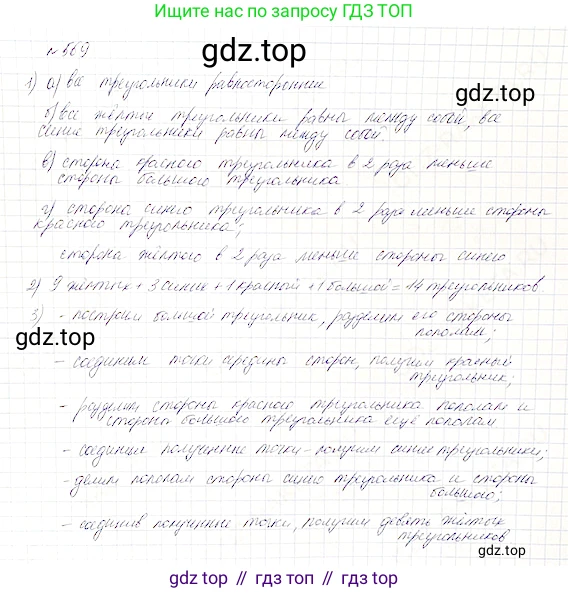 ищи нас по запросу ГДЗ ТОП
№569
gdz.top
1) а) все треугольники равносторонние
gdz.top
б) все жёлтые треугольники равны между собой, все
синие треугольники равны между собой.
в) сторона красного треугольника в 2 раза меньше
стороны большого треугольника
г) сторона синего треугольника в 2 раза меньше стороны
красного треугольника;
сторона жёлтого в 2 раза меньше стороны синего
2) 9 жёлтых + 3 синие + 1 красный + 1 большой = 14 треугольников
3) - построим большой треугольник, разделим его стороны
пополам;
gdz.top
- соединим точки середины сторон, получим красный
треугольник;
- разделим стороны красного треугольника пополам и
стороны большого треугольника ещё пополам
- соединим полученные точки - получим синие треугольники;
- делим пополам стороны синего треугольника и стороны
большого;
- соединив полученные точки, получим девять жёлтых
треугольников
gdz.top
gdz.top // гдз топ // gdz.top